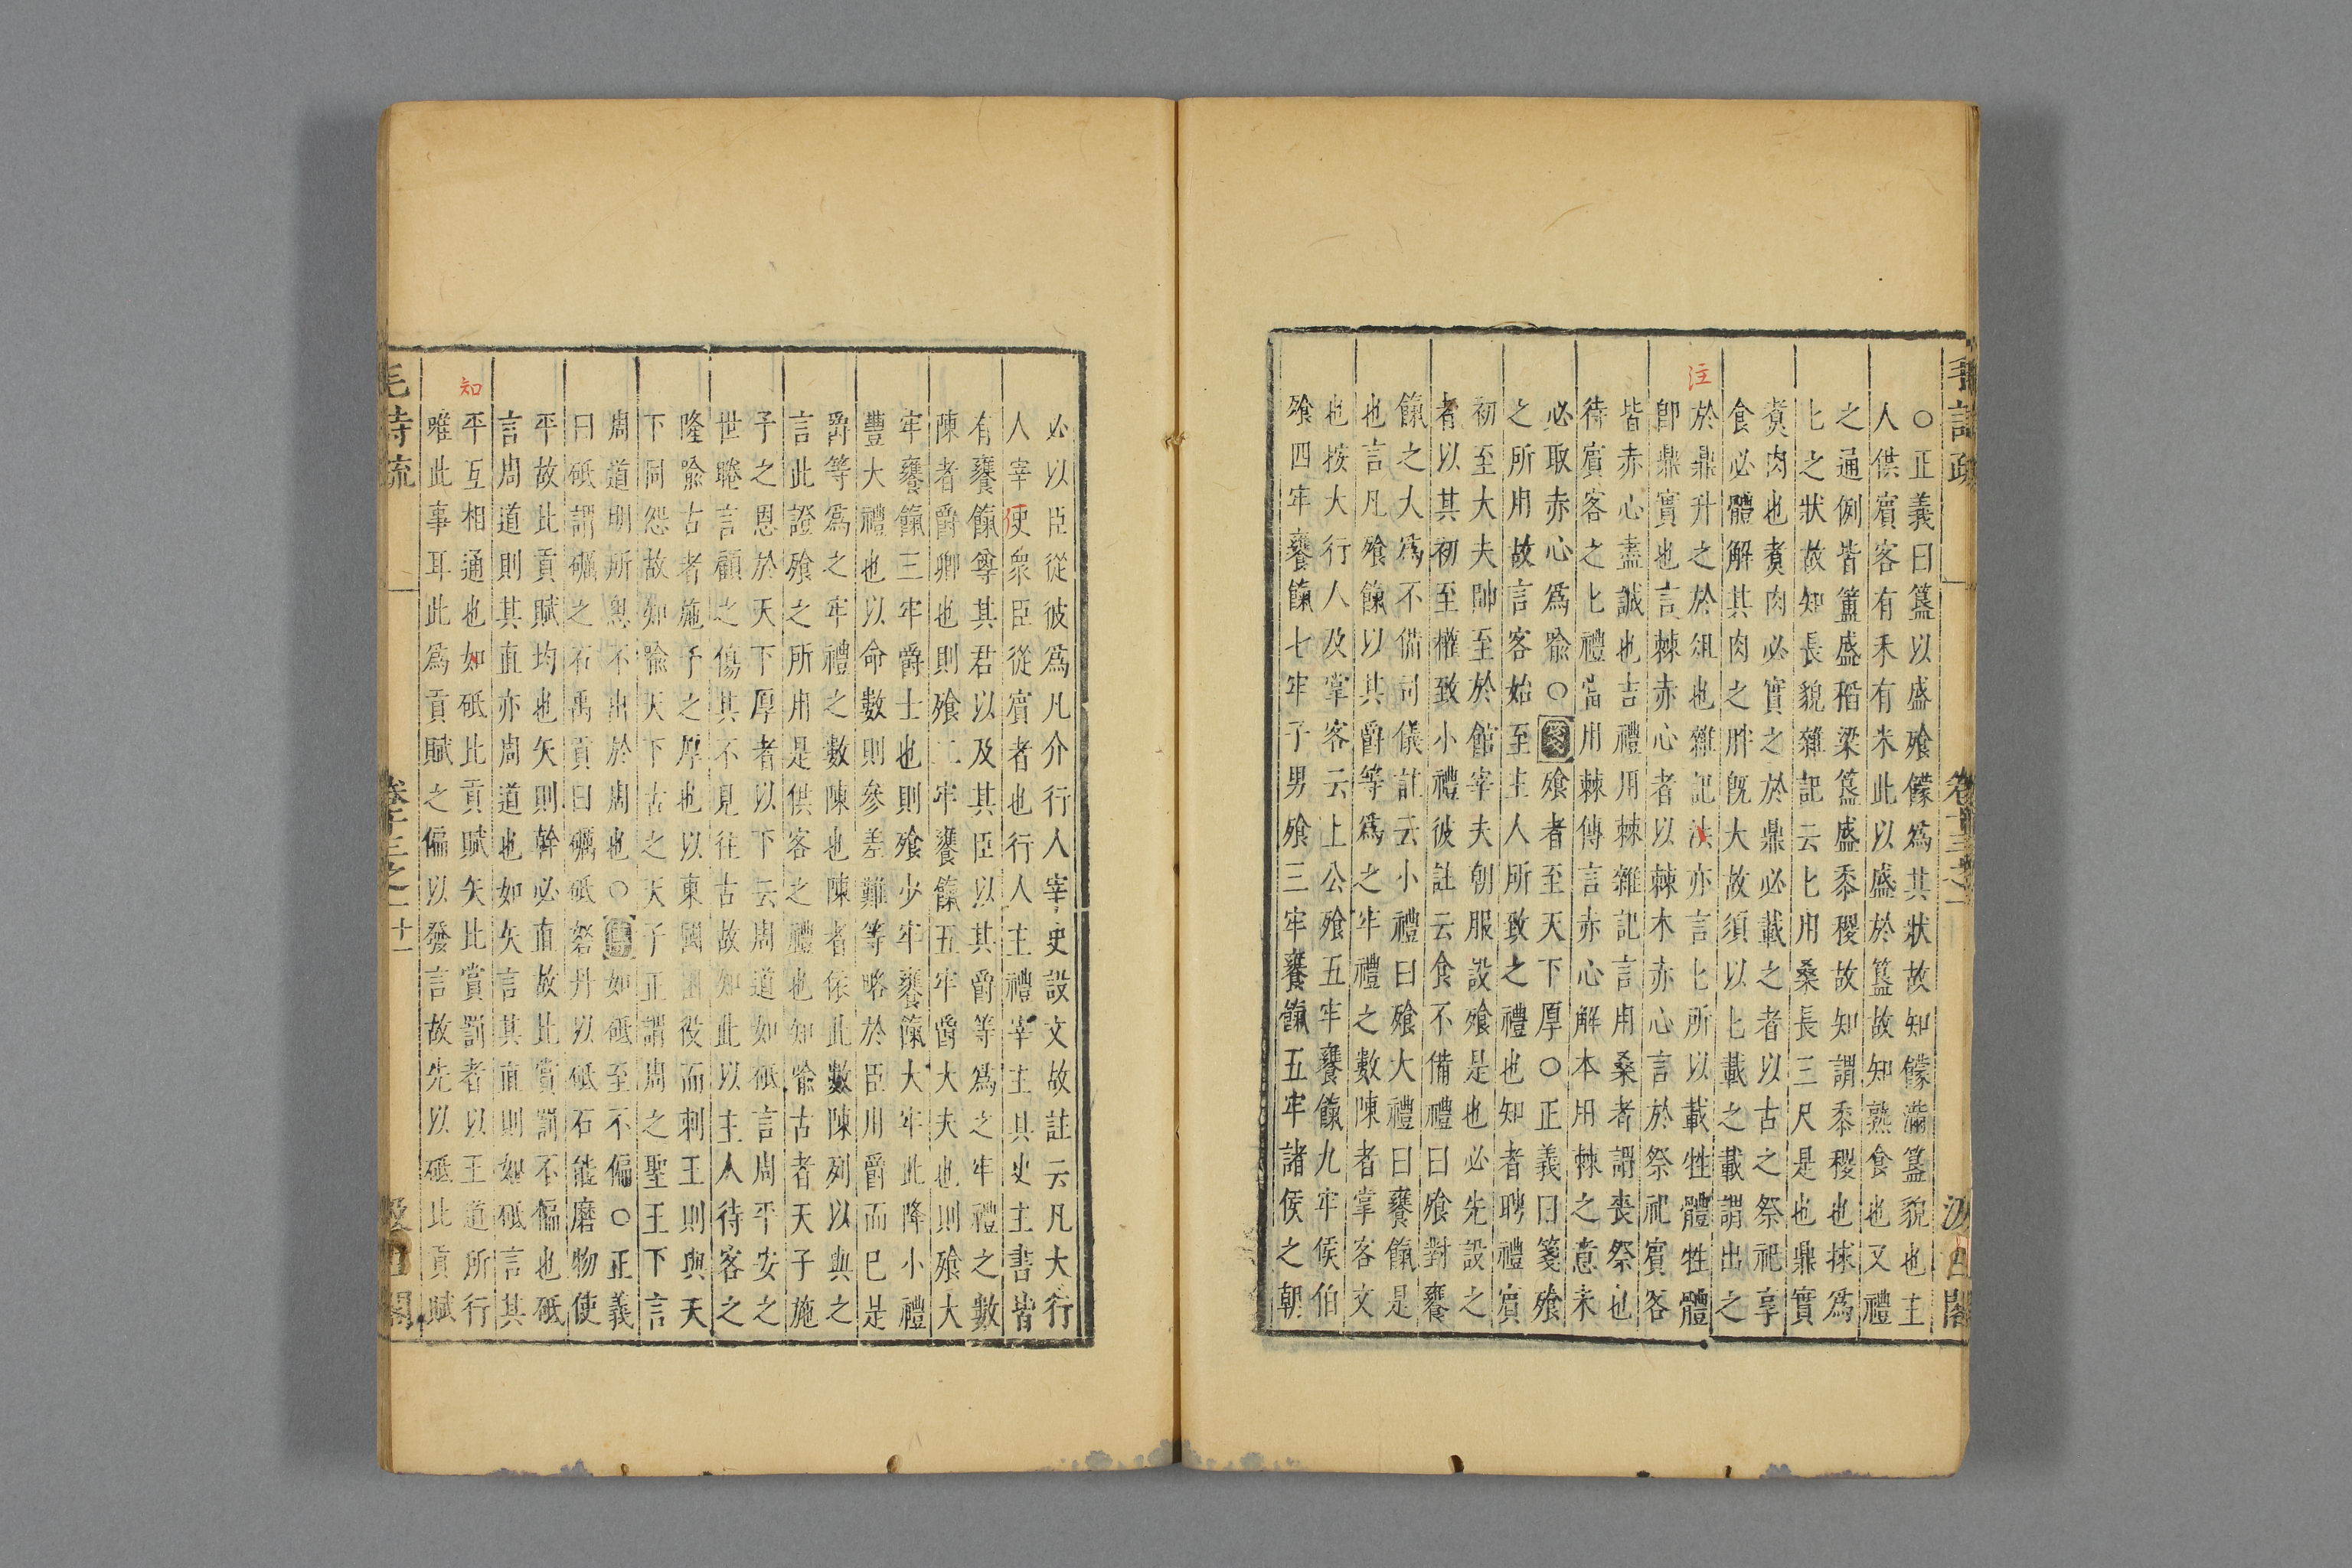 毛詩疏 卷十三之一 汲古閣
○正義曰簋以盛飱饛爲其狀故知饛滿簋貌也主
人供賓客有禾有米此以盛於簋故知熟食也又禮
之通例皆簠盛稻梁簋盛黍稷故知謂黍稷也捄爲
匕之狀故知長貌雜記云匕用桑長三尺是也鼎實
煑肉也煑肉必實之於鼎必載之者以古之祭祀享
食必體解其肉之胖旣大故須以匕載之載謂出之
注
於鼎升之於俎也雜記法亦言匕所以載牲體牲體
卽鼎實也言棘赤心者以棘木赤心言於祭祀賓客
皆赤心盡誠也吉禮用棘雜記言用桑者謂喪祭也
待賓客之匕禮當用棘傳言赤心解本用棘之意未
必取赤心爲喻○箋飱者至天下厚○正義曰箋飱
之所用故言客始至主人所致之禮也知者聘禮賓
初至大夫帥至於館宰夫朝服設飱是也必先設之
者以其初至權致小禮彼註云食不備禮曰飱對饔
餼之大爲不備司儀註云小禮曰飱大禮曰饔餼是
也言凡飱餼以其爵等爲之牢禮之數陳者掌客文
也按大行人及掌客云上公飱五牢饔餼九牢侯伯
飱四牢饔餼七牢子男飱三牢饔餼五牢諸侯之朝
必以臣從彼爲凡介行人宰史設文故註云凡大行
人宰使衆臣從賓者也行人主禮宰主具史主書皆
有饔餼尊其君以及其臣以其爵等爲之牢禮之數
陳者爵卿也則飱二牢饔餼五牢爵大夫也則飱大
牢饔餼三牢爵士也則飱少牢饔餼大牢此降小禮
豐大禮也以命數則參差難等略於臣用爵而已是
爵等爲之牢禮之數陳也陳者依此數陳列以與之
言此證飱之所用是供客之禮也知喻古者天子施
子之恩於天下厚者以下云周道如砥言周平安之
世睠言顧之傷其不見往古故知此以主人待客之
隆喻古者施予之厚也以東國困役而刺王則與天
下同怨故知喻天下古之天子正謂周之聖王下言
周道明所粵不出於周也○傳如砥至不偏○正義
曰砥謂礪之石禹貢曰礪砥砮丹以砥石能磨物使
平故此貢賦均也矢則幹必直故此賞罰不偏也砥
言周道則其直亦周道也如矢言其直則如砥言其
知
平互相通也如砥比貢賦矢比賞罰者以王道所行
唯此事耳此爲貢賦之偏以發言故先以砥比貢賦
毛詩疏 卷十三之一 十一 汲古閣